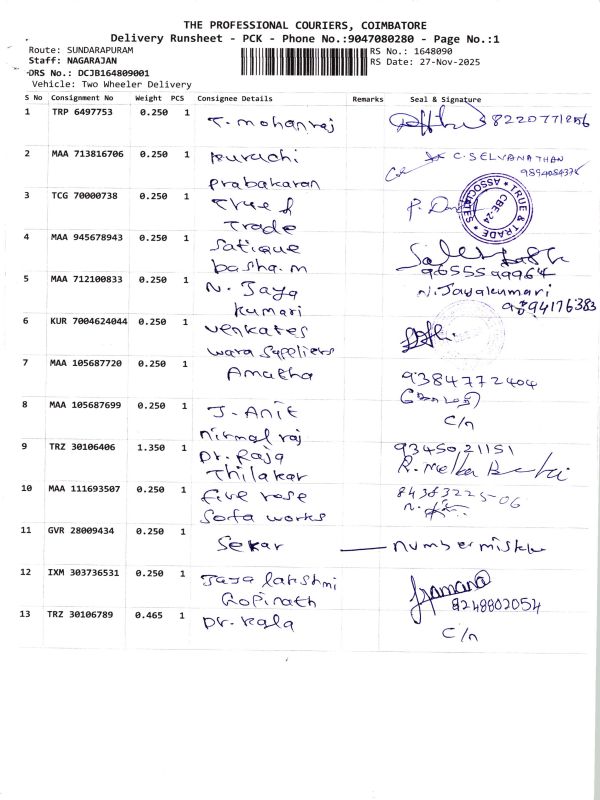 THE PROFESSIONAL COURIERS, COIMBATORE
Delivery Runsheet - PCK - Phone No.:9047080280 - Page No.:1
Route: SUNDARAPURAM
RS No.: 1648090
Staff: NAGARAJAN
RS Date: 27-Nov-2025
DRS No.: DCJB164809001
Vehicle: Two Wheeler Delivery
S No Consignment No Weight PCS Consignee Details Remarks Seal & Signature
1 TRP 6497753 0.250 1 T. mohanraj 8220771856
2 MAA 713816706 0.250 1 C. SELVANATHAN
prabakaran
3 TCG 70000738 0.250 1 True &
Trade
TRUE & TRADE ASSOCIATES CBE-24
4 MAA 945678943 0.250 1 Satique
basha.m 9655599964
5 MAA 712100833 0.250 1 N. Jaya N. Jayakumari
kumari 9894176383
6 KUR 7004624044 0.250 1 venkates
wara suppliers
7 MAA 105687720 0.250 1 Amatha 9384772404
8 MAA 105687699 0.250 1 J. Anit C/n
nirmal raj
9 TRZ 30106406 1.350 1 Dr. Raja 9345021151
Thilakar
10 MAA 111693507 0.250 1 five rose 84383225-06
Sofa works
11 GVR 28009434 0.250 1 Sekar number
12 IXM 303736531 0.250 1 Jaya lakshmi
Gopinath 8248802054
13 TRZ 30106789 0.465 1 Dr. Kala C/n